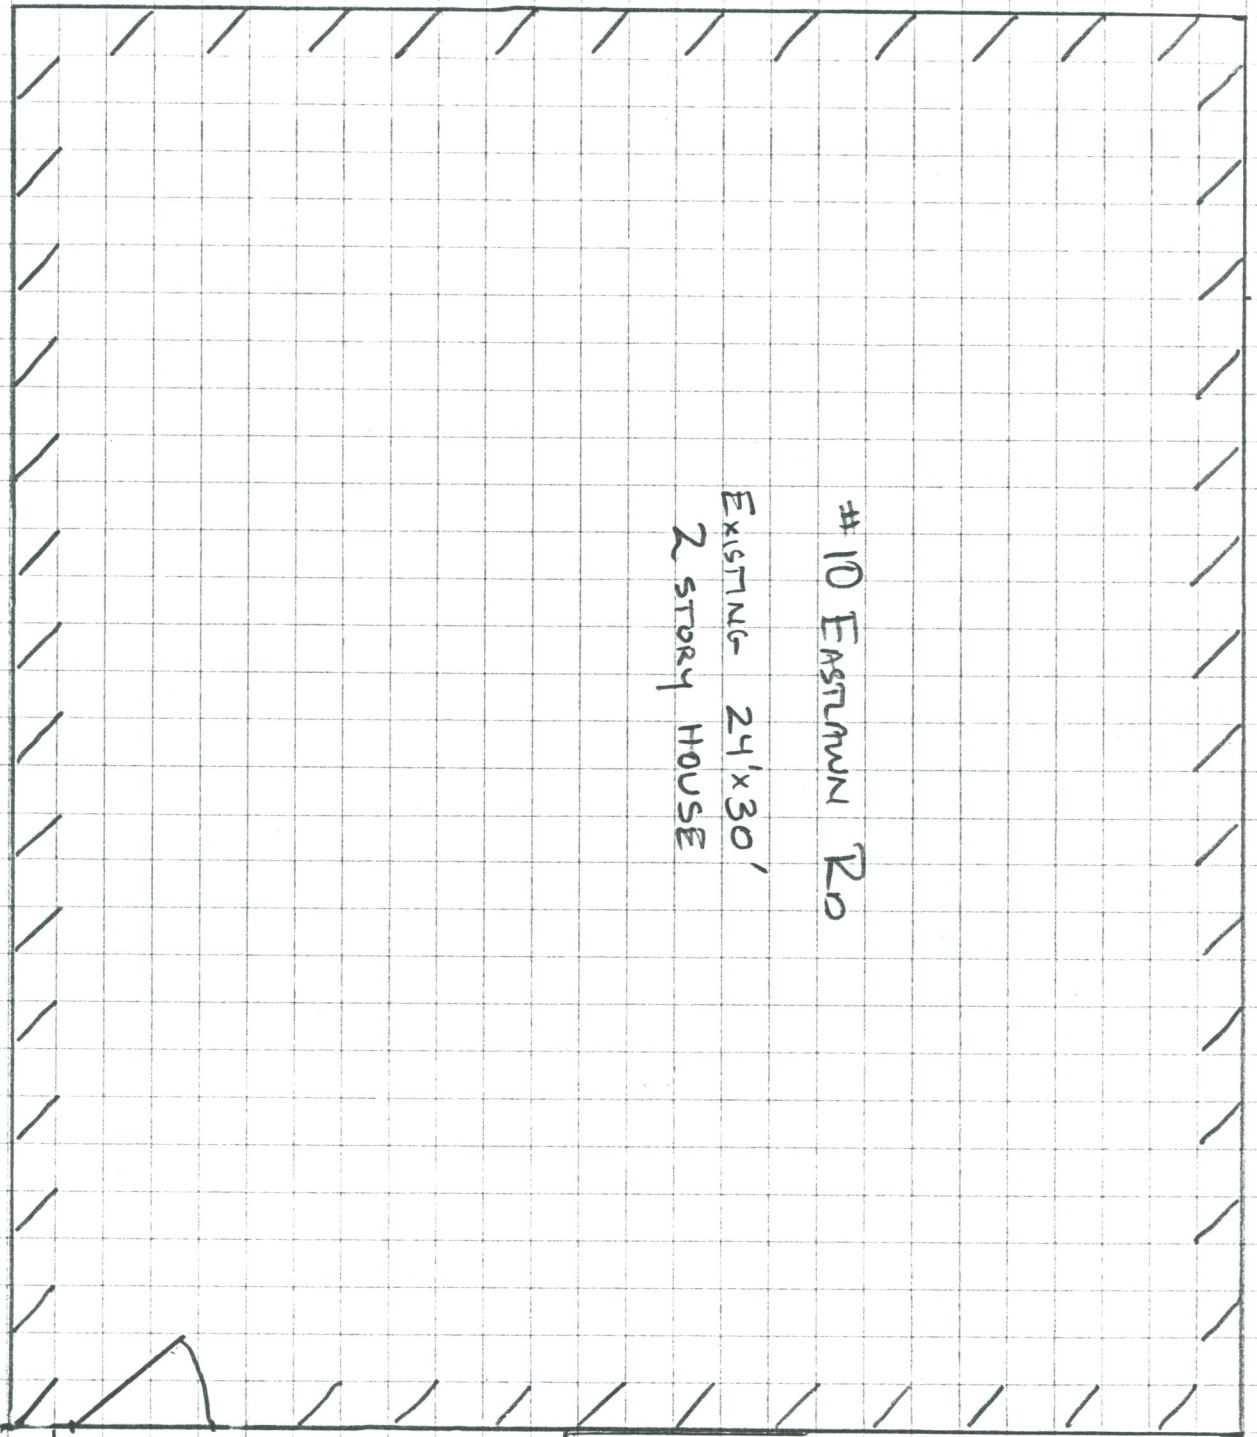 # 10 EASTLAWN RD
EXISTING 24'x30'
2 STORY HOUSE